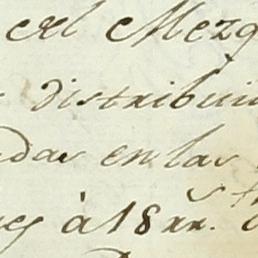 el Mezq
distribui
das en las
à 18 rr.